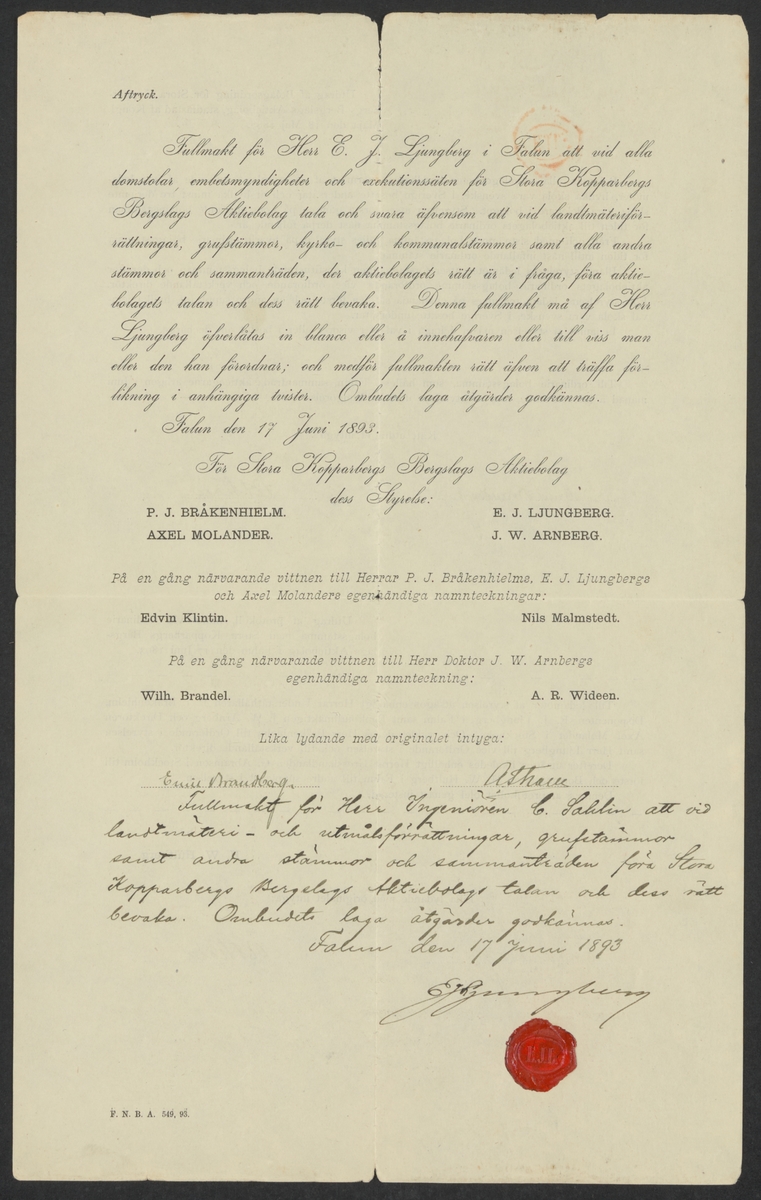 Aftryck.
Fullmakt för Herr E. J. Ljungberg i Falun att vid alla
domstolar, embetsmyndigheter och exekutionssäten för Stora Kopparbergs
Bergslags Aktiebolag tala och svara äfvensom att vid landtmäteriför-
rättningar, grufstämmor, kyrko- och kommunalstämmor samt alla andra
stämmor och sammanträden, der aktiebolagets rätt är i fråga, föra aktie-
bolagets talan och dess rätt bevaka. Denna fullmakt må af Herr
Ljungberg öfverlåtas in blanco eller å innehafvaren eller till viss man
eller den han förordnar; och medför fullmakten rätt äfven att träffa för-
likning i anhängiga tvister. Ombudets laga åtgärder godkännas.
Falun den 17 Juni 1893.
För Stora Kopparbergs Bergslags Aktiebolag
dess Styrelse:
P. J. BRÅKENHIELM. E. J. LJUNGBERG.
AXEL MOLANDER. J. W. ARNBERG.
På en gång närvarande vittnen till Herrar P. J. Bråkenhielms, E. J. Ljungbergs
och Axel Molanders egenhändiga namnteckningar:
Edvin Klintin. Nils Malmstedt.
På en gång närvarande vittnen till Herr Doktor J. W. Arnbergs
egenhändiga namnteckning:
Wilh. Brandel. A. R. Wideen.
Lika lydande med originalet intyga:
Emil Brandberg.
Fullmakt för Herr Ingeniören C. Sahlin att vid
landtmäteri- och utmålsförrättningar, grufstämmor
samt andra stämmor och sammanträden föra Stora
Kopparbergs Bergslags Aktiebolags talan och dess rätt
bevaka. Ombudets laga åtgärder godkännas.
Falun den 17 juni 1893
EJLjungberg
E.J.L.
F. N. B. A. 549, 93.